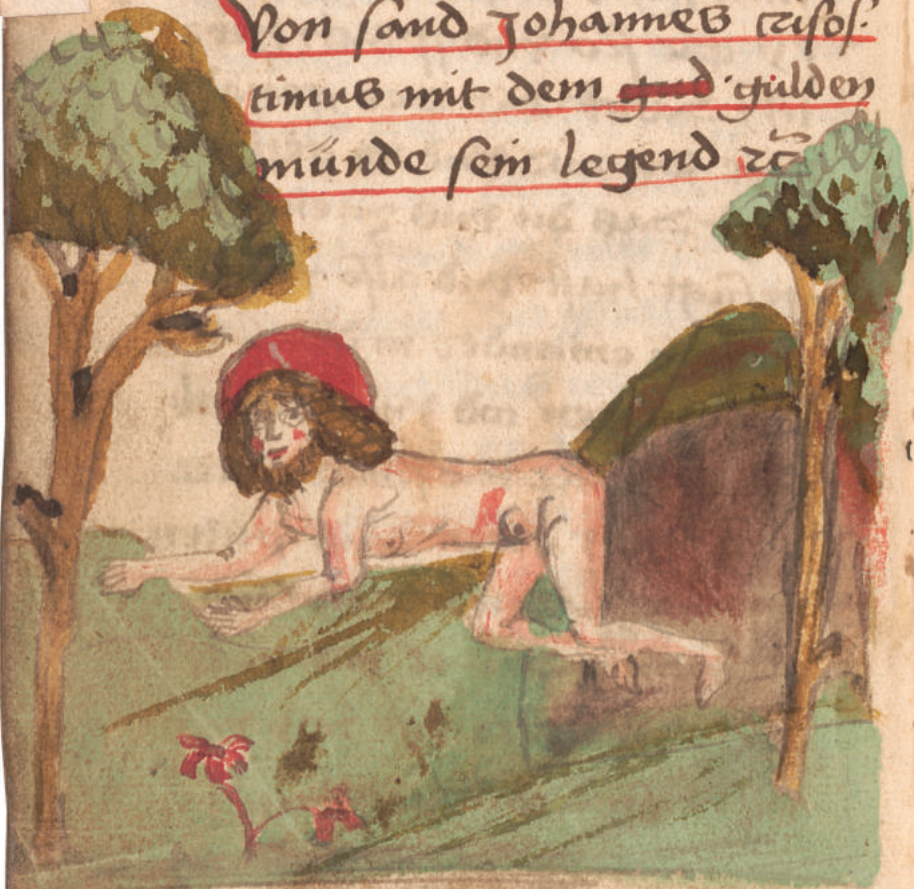 Von sand Johannes crisos-
timus mit dem gud gulden
munde sein legend ꝛc̄